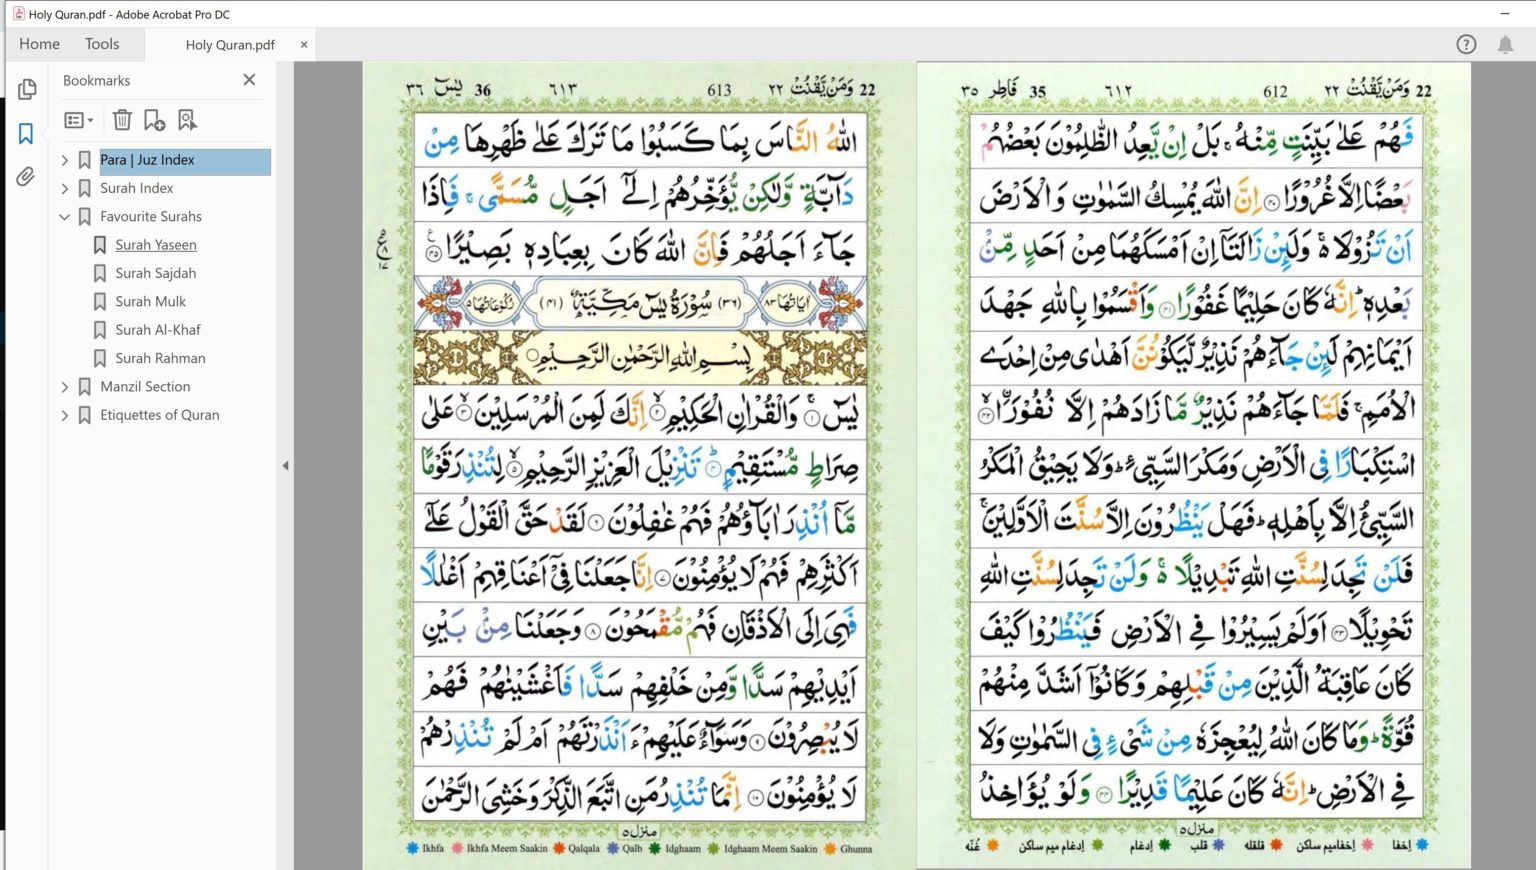 Holy Quran.pdf - Adobe Acrobat Pro DC
Home
Tools
Holy Quran.pdf
Bookmarks
Para | Juz Index
Surah Index
Favourite Surahs
Surah Yaseen
Surah Sajdah
Surah Mulk
Surah Al-Khaf
Surah Rahman
Manzil Section
Etiquettes of Quran
22 وَمَنْ يَّقْنُتْ ٢٢ 612 ٦١٢ 35 فَاطِر ٣٥
فَهُمْ عَلٰى بَيِّنَتٍ مِّنْهُ ۚ بَلْ اِنْ يَّعِدُ الظّٰلِمُوْنَ بَعْضُهُمْ
بَعْضًا اِلَّا غُرُوْرًا ۝٤٠ اِنَّ اللّٰهَ يُمْسِكُ السَّمٰوٰتِ وَ الْاَرْضَ
اَنْ تَزُوْلَا ۬ۚ وَلَىِٕنْ زَالَتَاۤ اِنْ اَمْسَكَهُمَا مِنْ اَحَدٍ مِّنْۢ
بَعْدِهٖ ؕ اِنَّهٗ كَانَ حَلِيْمًا غَفُوْرًا ۝٤١ وَاَقْسَمُوْا بِاللّٰهِ جَهْدَ
اَيْمَانِهِمْ لَىِٕنْ جَآءَهُمْ نَذِيْرٌ لَّيَكُوْنُنَّ اَهْدٰى مِنْ اِحْدَى
الْاُمَمِ ۚ فَلَمَّا جَآءَهُمْ نَذِيْرٌ مَّا زَادَهُمْ اِلَّا نُفُوْرًا ۝٤٢
اسْتِكْبَارًا فِى الْاَرْضِ وَمَكْرَ السَّيِّئِ ؕ وَلَا يَحِيْقُ الْمَكْرُ
السَّيِّئُ اِلَّا بِاَهْلِهٖ ؕ فَهَلْ يَنْظُرُوْنَ اِلَّا سُنَّتَ الْاَوَّلِيْنَ ۚ
فَلَنْ تَجِدَ لِسُنَّتِ اللّٰهِ تَبْدِيْلًا ۬ۚ وَلَنْ تَجِدَ لِسُنَّتِ اللّٰهِ
تَحْوِيْلًا ۝٤٣ اَوَلَمْ يَسِيْرُوْا فِى الْاَرْضِ فَيَنْظُرُوْا كَيْفَ
كَانَ عَاقِبَةُ الَّذِيْنَ مِنْ قَبْلِهِمْ وَكَانُوْۤا اَشَدَّ مِنْهُمْ
قُوَّةً ؕ وَمَا كَانَ اللّٰهُ لِيُعْجِزَهٗ مِنْ شَىْءٍ فِى السَّمٰوٰتِ وَلَا
فِى الْاَرْضِ ؕ اِنَّهٗ كَانَ عَلِيْمًا قَدِيْرًا ۝٤٤ وَلَوْ يُؤَاخِذُ
منزل ٥
اِخفا اِخفامیم ساکن قلقله قلب اِدغام اِدغام میم ساکن غُنّه
22 وَمَنْ يَّقْنُتْ ٢٢ 613 ٦١٣ 36 يٰسٓ ٣٦
اللّٰهُ النَّاسَ بِمَا كَسَبُوْا مَا تَرَكَ عَلٰى ظَهْرِهَا مِنْ
دَآبَّةٍ وَّلٰكِنْ يُّؤَخِّرُهُمْ اِلٰۤى اَجَلٍ مُّسَمًّى ۚ فَاِذَا
جَآءَ اَجَلُهُمْ فَاِنَّ اللّٰهَ كَانَ بِعِبَادِهٖ بَصِيْرًا ۝٤٥
اٰيَاتُهَا ٨٣ (٣٦) سُوْرَةُ يٰسٓ مَكِّيَّةٌ (٤١) رُكُوْعَاتُهَا ٥
بِسْمِ اللّٰهِ الرَّحْمٰنِ الرَّحِيْمِ
يٰسٓ ۝١ وَالْقُرْاٰنِ الْحَكِيْمِ ۝٢ اِنَّكَ لَمِنَ الْمُرْسَلِيْنَ ۝٣ عَلٰى
صِرَاطٍ مُّسْتَقِيْمٍ ۝٤ تَنْزِيْلَ الْعَزِيْزِ الرَّحِيْمِ ۝٥ لِتُنْذِرَ قَوْمًا
مَّاۤ اُنْذِرَ اٰبَآؤُهُمْ فَهُمْ غٰفِلُوْنَ ۝٦ لَقَدْ حَقَّ الْقَوْلُ عَلٰۤى
اَكْثَرِهِمْ فَهُمْ لَا يُؤْمِنُوْنَ ۝٧ اِنَّا جَعَلْنَا فِىْۤ اَعْنَاقِهِمْ اَغْلٰلًا
فَهِىَ اِلَى الْاَذْقَانِ فَهُمْ مُّقْمَحُوْنَ ۝٨ وَجَعَلْنَا مِنْۢ بَيْنِ
اَيْدِيْهِمْ سَدًّا وَّمِنْ خَلْفِهِمْ سَدًّا فَاَغْشَيْنٰهُمْ فَهُمْ
لَا يُبْصِرُوْنَ ۝٩ وَسَوَآءٌ عَلَيْهِمْ ءَاَنْذَرْتَهُمْ اَمْ لَمْ تُنْذِرْهُمْ
لَا يُؤْمِنُوْنَ ۝١٠ اِنَّمَا تُنْذِرُ مَنِ اتَّبَعَ الذِّكْرَ وَخَشِىَ الرَّحْمٰنَ
منزل ٥
Ikhfa Ikhfa Meem Saakin Qalqala Qalb Idghaam Idghaam Meem Saakin Ghunna